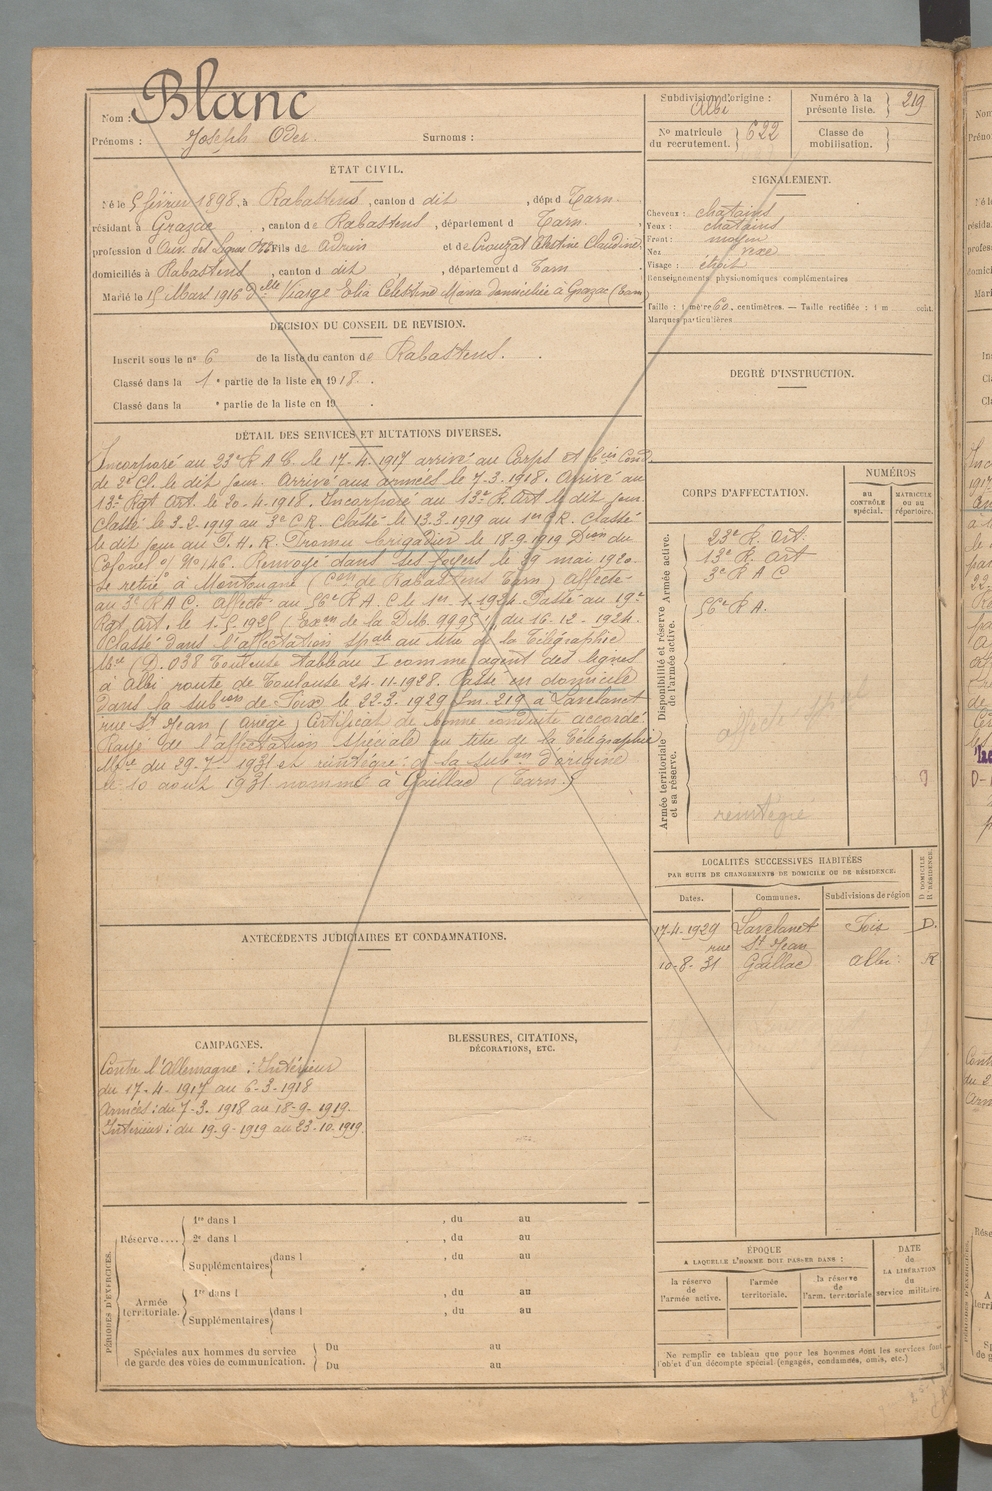 Nom : Blanc
Prénoms : Joseph Surnoms :
ÉTAT CIVIL.
Né le 5 février 1898, à Rabastens, canton d dit, dépt d Tarn.
résidant à Grazac, canton de Rabastens, département d Tarn,
profession d Ouv. des lignes Fils de et de Crouzat Célestine Claudine,
domiciliés à Rabastens, canton d dit, département d Tarn
Marié le 15 Mars 1916 Dlle Viarge Célestine Maria domiciliée à Grazac (Tarn)
DÉCISION DU CONSEIL DE REVISION.
Inscrit sous le n° 6 de la liste du canton de Rabastens.
Classé dans la 1e partie de la liste en 1918.
Classé dans la e partie de la liste en 19 .
DÉTAIL DES SERVICES ET MUTATIONS DIVERSES.
Incorporé au 23e R A C. le 17-4-1917 arrivé au Corps et
de 2e Cl. le dit jour. Arrivé aux armées le 7-3-1918. Arrivé au
13e Rgt Art. le 20-4-1918. Incorporé au 13e R. Art le dit jour.
Classé le 3-2-1919 au 3e C R. Classé le 13.3.1919 au 1er C R. Classé
le dit jour au P. H. R. Promu Brigadier le 18-9-1919 Dion du
Colonel o/ No 146. Renvoyé dans ses foyers le 29 mai 1920.
Se retire à Montaugne (Con de Rabastens Tarn) Affecté
au 3e R A C. Affecté au 56e R A. C le 1er-1-1924. Passé au 19e
Rgt Art. le 1-5-1925 (Exon de la D.M. 9995 du 16-12-1924.
Classé dans l'affectation spale au titre de la Télégraphie
Mre (D. 038 Toulouse tableau I comme agent des lignes
à Albi route de Toulouse 24-11-1928. Passé en domicile
dans la subon de Foix le 22-3-1929 Lm. 219 à Lavelanet
rue St Jean (Ariège) Certificat de bonne conduite accordé.
Rayé de l'affectation spéciale au titre de la Télégraphie
Mre du 29-7-1931 et réintégré à sa subon d'origine
le 10 août 1931 nommé à Gaillac (Tarn.)
ANTÉCÉDENTS JUDICIAIRES ET CONDAMNATIONS.
CAMPAGNES.
Contre l'Allemagne : Intérieur
du 17-4-1917 au 6-3-1918
Armées : du 7-3-1918 au 18-9-1919.
Intérieur : du 19-9-1919 au 23-10-1919.
BLESSURES, CITATIONS,
DÉCORATIONS, ETC.
PÉRIODES D'EXERCICES.
Réserve....
1re dans l , du au
2e dans l , du au
Supplémentaires dans l , du au
Armée territoriale.
1re dans l , du au
Supplémentaires dans l , du au
Spéciales aux hommes du service
de garde des voies de communication.
Du au
Du au
Subdivision d'origine :
Albi
Numéro à la
présente liste. 219
No matricule
du recrutement. 622
Classe de
mobilisation.
SIGNALEMENT.
Cheveux : chatains
Yeux : chatains
Front : moyen
Nez vexe
Visage : étroit
Renseignements physionomiques complémentaires
Taille : 1 mètre 60. centimètres. — Taille rectifiée : 1 m cent.
Marques particulières
DEGRÉ D'INSTRUCTION.
CORPS D'AFFECTATION.
NUMÉROS
au
CONTRÔLE
spécial.
MATRICULE
ou au
répertoire.
Armée active.
23e R. Art.
13e R. Art
3e R A C
Disponibilité et réserve
de l'armée active.
56e R A.
affecté spécial
Armée territoriale
et sa réserve.
réintégré
LOCALITÉS SUCCESSIVES HABITÉES
PAR SUITE DE CHANGEMENTS DE DOMICILE OU DE RÉSIDENCE.
Dates. Communes. Subdivisions de région D DOMICILE R RÉSIDENCE.
17-4-1929 Lavelanet Foix D.
rue St Jean
10-8-31 Gaillac Albi R
ÉPOQUE
A LAQUELLE L'HOMME DOIT PASSER DANS :
la réserve
de
l'armée active.
l'armée
territoriale.
la réserve
de
l'arm. territoriale
DATE
de
LA LIBÉRATION
du
service militaire.
Ne remplir ce tableau que pour les hommes dont les services font
l'objet d'un décompte spécial (engagés, condamnés, omis, etc.)